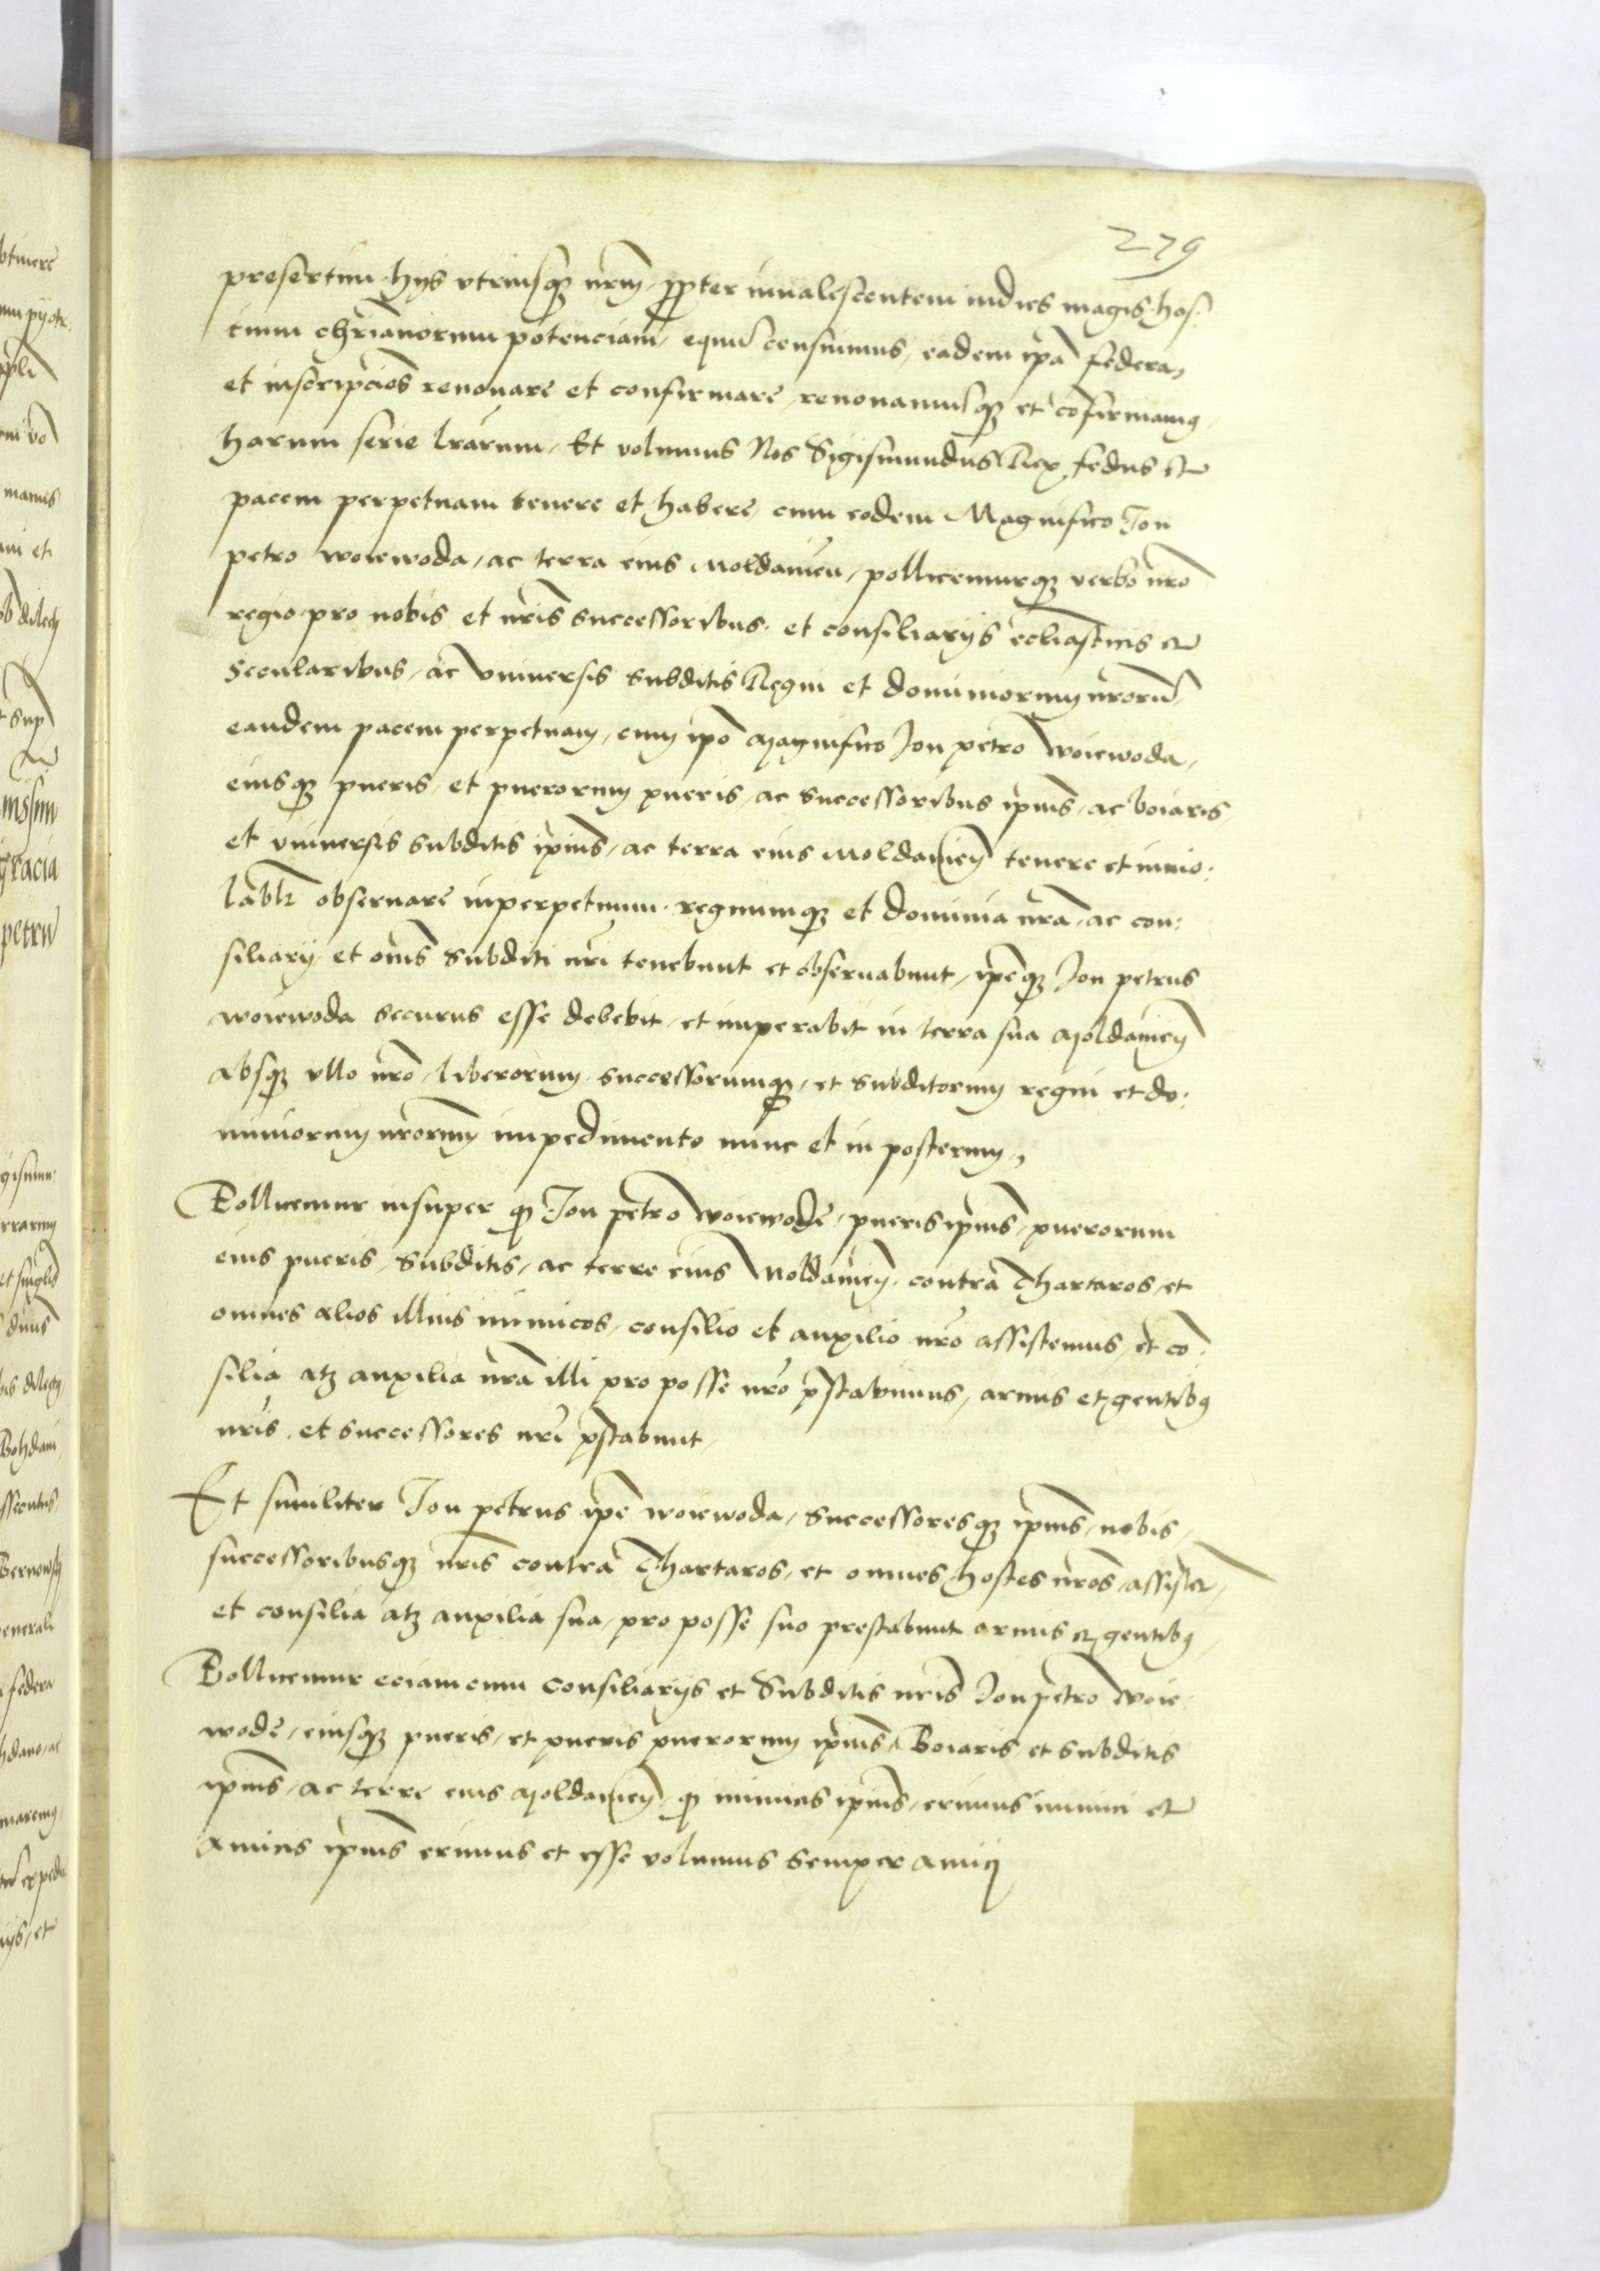 279
presertim hijs vtriusq nrm propter inualescentem indies magis hos:
tium chrianorum potenciam, equu censuimus, eadem ipa federa,
et inscripcios renouare et confirmare, renouamusq et cofirmamus,
harum serie lrarum, Et volumus Nos Sigismundus Rex, fedus et
pacem perpetuam tenere et habere, cum eodem Magnifico Jon
petro woiewoda, ac terra eius Moldauien, pollicemurq verbo nro
regio pro nobis et nris successoribus, et consiliarijs eccliasticis et
Secularibus, ac Vniuersis subditis Regni et dominiorum nroru
eandem pacem perpetuam, cum ipo Magnifico Jon petro Woiewoda,
eiusq pueris, et puerorum pueris, ac successoribus ipius, ac boiaris
et vniuersis subditis ipius, ac terra eius Moldauien tenere et inuio:
lablr obseruare inperpetuum. regnumq et dominia nra, ac con:
siliarij et oms Subditi nri tenebunt et obseruabunt, ipeq Jon petrus
woiewoda securus esse debebit, et imperabit in terra sua Moldauien
absq vllo nro, liberorum successorumq, et subditorum regni et do:
miniorum nrorum impedimento nunc et in posterum,
Pollicemur insuper q Jon petro woiewode, pueris ipius, puerorum
eius pueris, Subditis, ac terre eius Moldauien, contra Thartaros, et
omnes alios illius inimicos, consilio et auxilio nro assistemus, et co:
silia atq auxilia nra illi pro posse nro pstabimus, armis et gentibus
nris, et successores nri pstabunt,
Et similiter Jon petrus ipe woiewoda, Successoresq ipius, nobis,
successoribusq nris contra Thartaros, et omnes hostes nros, assistet,
et consilia atq auxilia sua, pro posse suo prestabunt armis et gentibus,
Pollicemur eciam cum Consiliarijs et Subditis nris Jon petro Woie:
wode, eiusq pueris, et pueris puerorum ipius, Boiaris et subditis
ipius, ac terre eius Moldauien, q inimicis ipius, erimus inimici et
Amicis ipius erimus et esse volumus semper amici